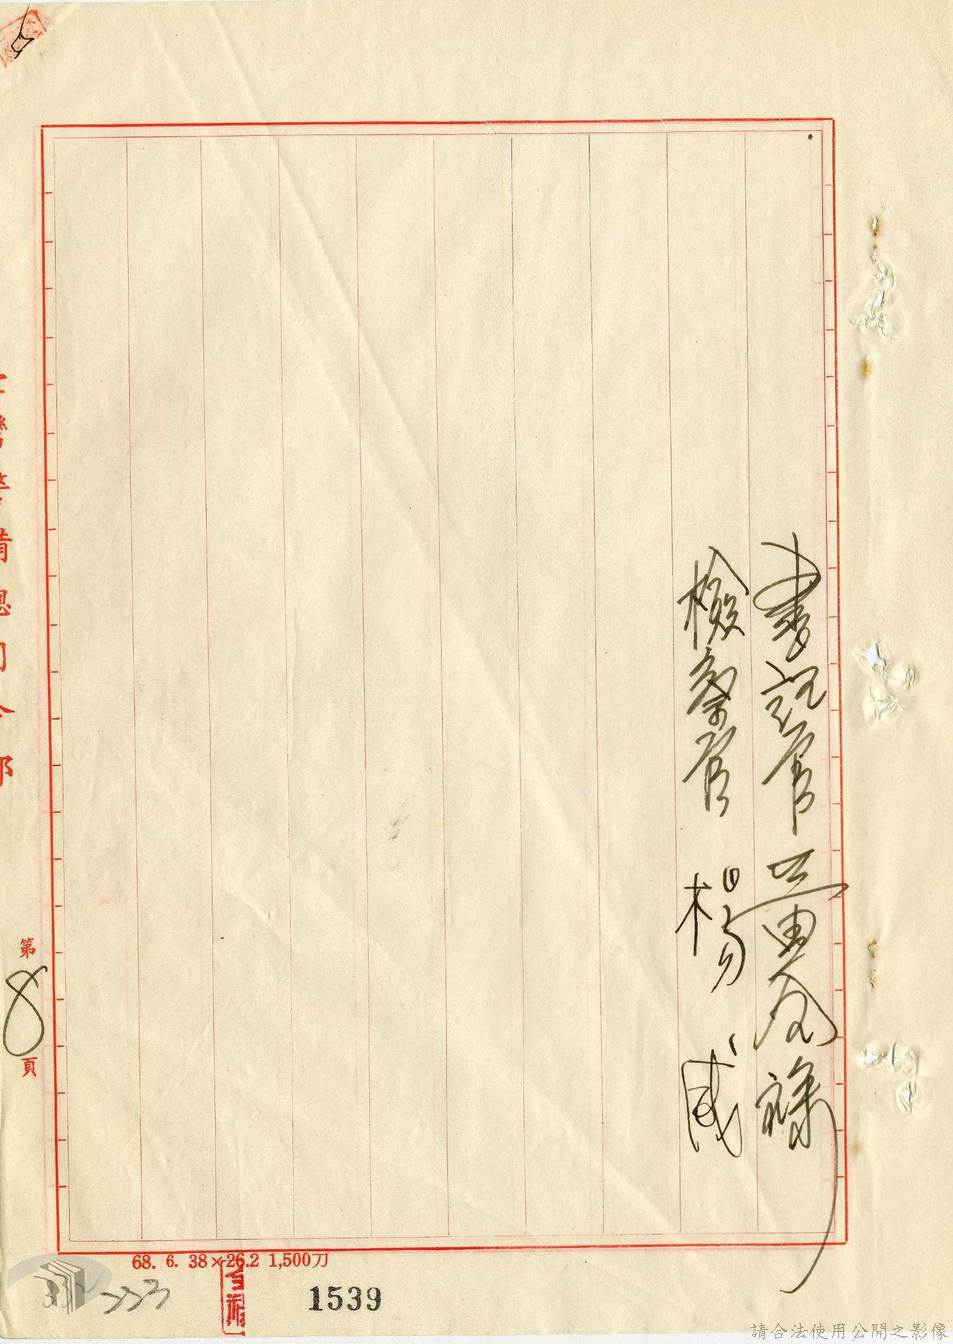 書記官 黃友祿
檢察官 楊威
灣警備總司令部
第8頁
68. 6. 38×26.2 1,500刀
1539
請合法使用公開之影像